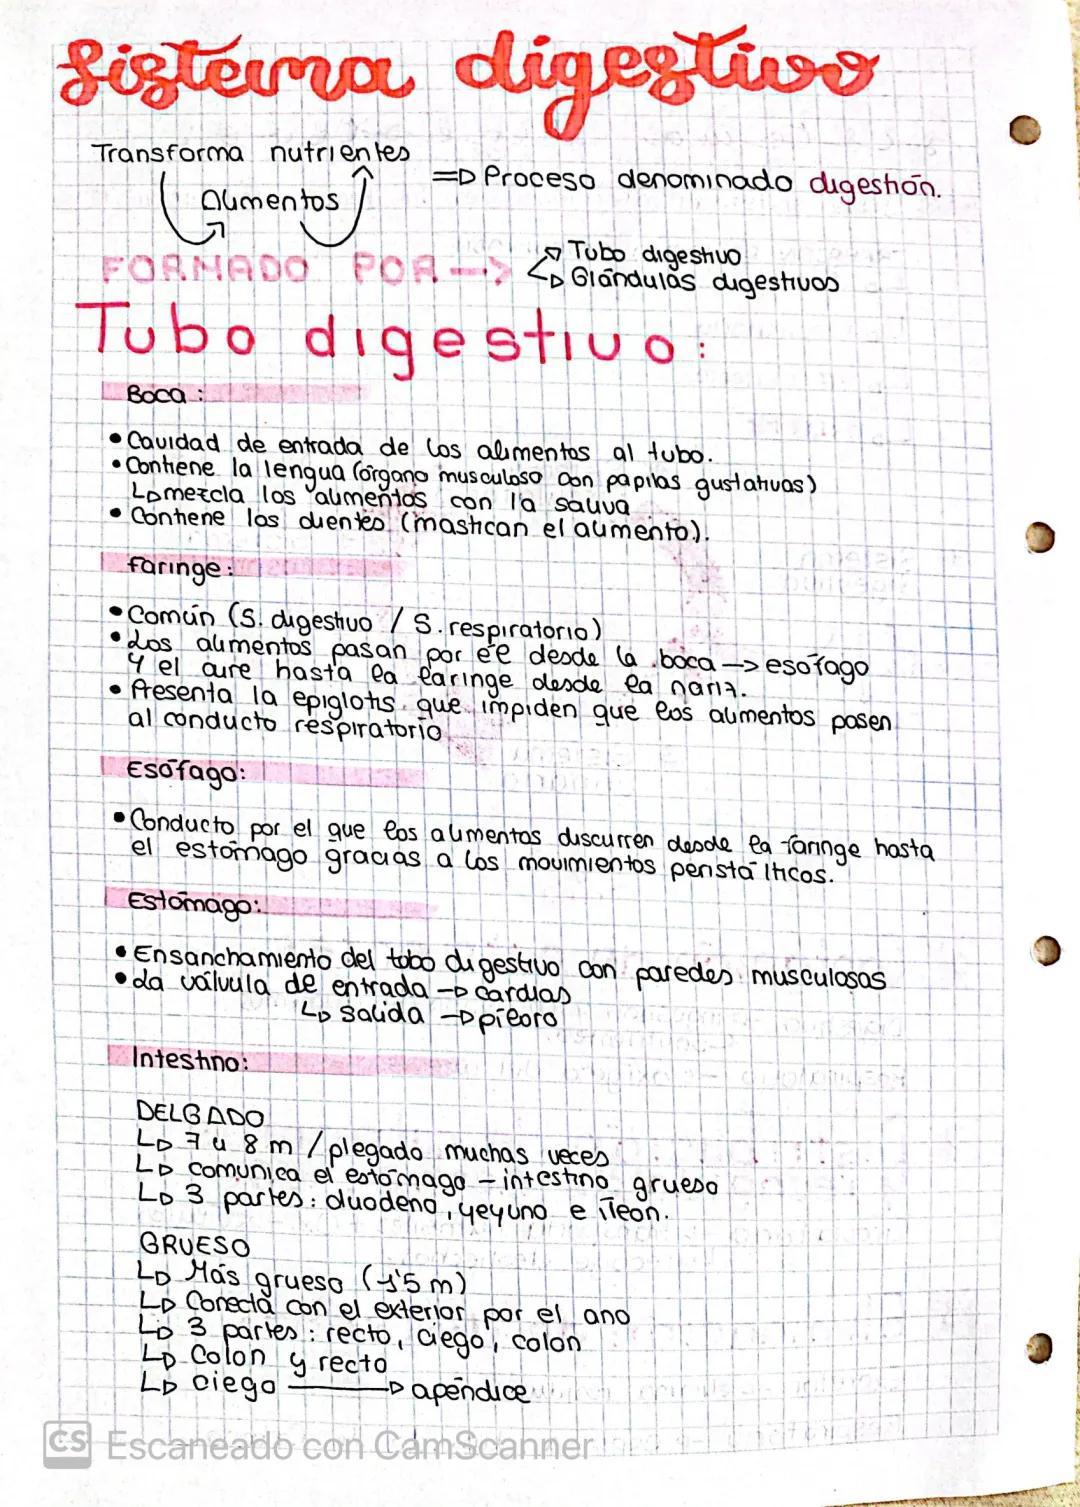 Sistema digestivo
Transforma nutrientes
Alimentos
=> Proceso denominado digestión.
FORMADO POR -->
Tubo digestivo
Glándulas digestivas
Tubo digestivo:
Boca:
• Cavidad de entrada de los alimentos al tubo.
• Contiene la lengua (órgano musculoso con papilas gustativas)
↳ mezcla los alimentos con la saliva
• Contiene los dientes (mastican el alimento).
faringe:
• Común (S. digestivo / S. respiratorio)
• Los alimentos pasan por él desde la boca -> esófago
y el aire hasta la laringe desde la nariz.
• Presenta la epiglotis que impiden que los alimentos pasen
al conducto respiratorio
Esófago:
• Conducto por el que los alimentos discurren desde la faringe hasta
el estómago gracias a los movimientos peristálticos.
Estómago:
• Ensanchamiento del tobo digestivo con paredes musculosas
• La válvula de entrada -> cardias
↳ salida -> píloro
Intestino:
DELGADO
↳ 7 u 8 m / plegado muchas veces
↳ comunica el estómago - intestino grueso
↳ 3 partes: duodeno, yeyuno e íleon.
GRUESO
↳ Más grueso (1'5 m)
↳ Conecta con el exterior por el ano
↳ 3 partes: recto, ciego, colon
↳ Colon y recto
↳ ciego -> apéndice
CS Escaneado con CamScanner